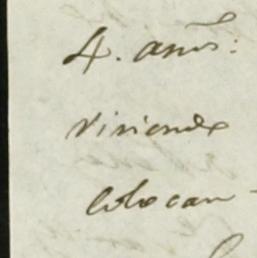 4. ans:
viviendo
colocan-